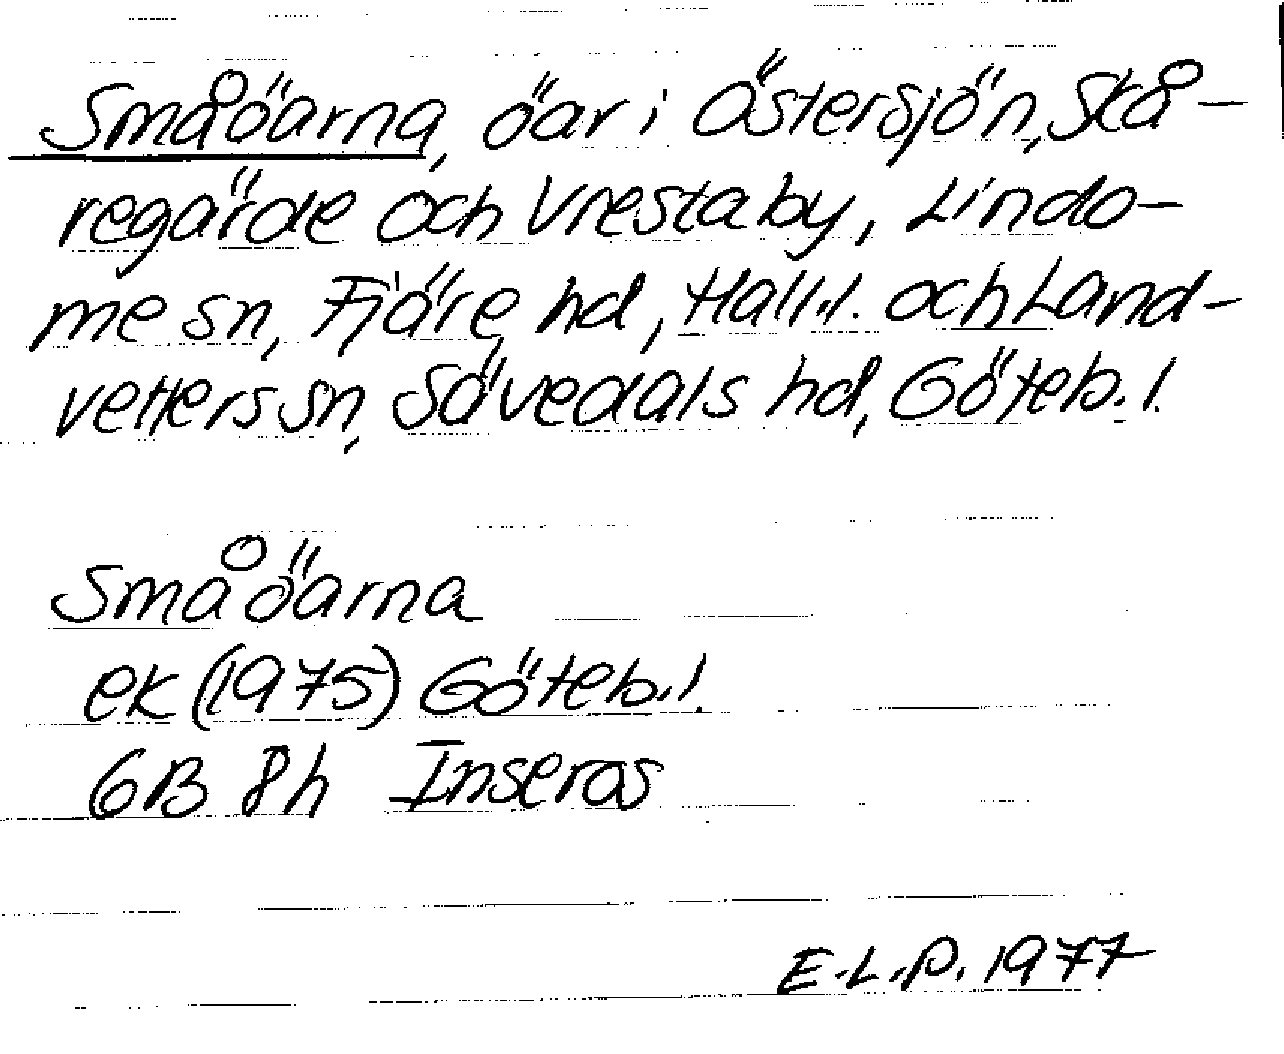 Småöarna, öar i Östersjön, Skå-
regärde och Vrestaby, Lindo-
me sn, Fjäre hd, Hall.l. och Land-
vetters sn, Sävedals hd, Göteb.l.
Småöarna
ek (1975) Göteb.l.
6B 8h Inseros
E.L.P. 1977